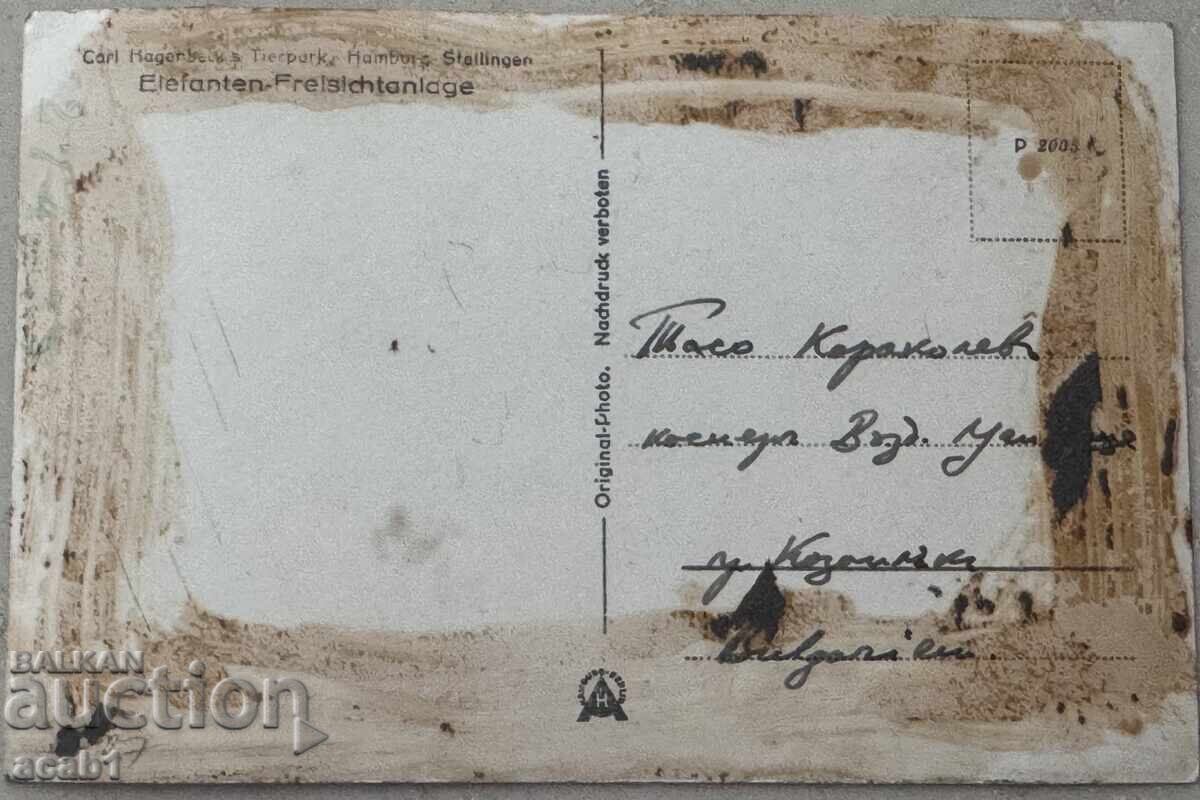 Carl Hagenbeck's Tierpark, Hamburg Stellingen
Elefanten-Freisichtanlage
P 2005
Original-Photo. Nachdruck verboten
Тасо Караколевъ
Възд.
гр. Казанлък
Bulgarien.
HAMBURG-BERLIN
BALKAN
auction
acab1